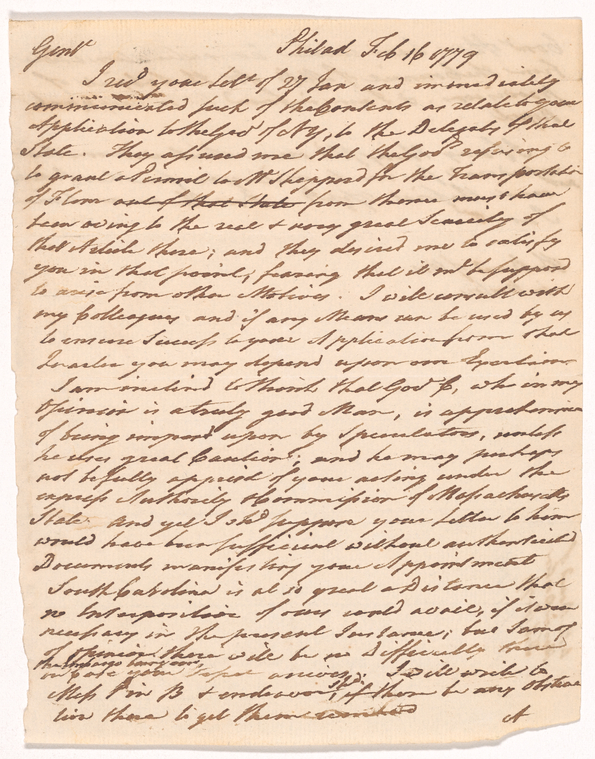 Gentn Philad Feb 16 1779
I recd your Lettr of 27 Jan and immediately
communicated such of the Contents as relate to your
Application to the Govr of NY, to the Delegates of that
State. They assured me that the Govrs refusing to
to grant a Permit to Mr Sheppard for the Transportation
of Flour out of that State from thence must have
been owing to the real & very great Scarcity of
that Article there; and they desired me to satisfy
you in that point, fearing that it mt be supposd
to arise from other Motives. I will consult with
my Colleagues and if any Means can be used by us
to ensure Success to your Application from that
Quarter you may depend upon our Exertions
I am inclind to think that Govr C, who in my
Opinion is a truly good Man, is apprehensive
of being imposd upon by Speculators, unless
he uses great Caution; and he may perhaps
not be fully apprisd of your acting under the
express Authority & Commission of Massachusetts
State. And yet I shd suppose your Letter to him
would have been sufficient without authenticated
Documents manifesting your Appointment
South Carolina is at so great a Distance that
no Interposition of ours could avail, if it were
necessary in the present Instance; but I am of
Opinion there will be no Difficulty there
the Embargo
in case your Vessel arrives. I will write to
Mess in B & endeavor, if there be any Obstruc
tion there to get them removed
A